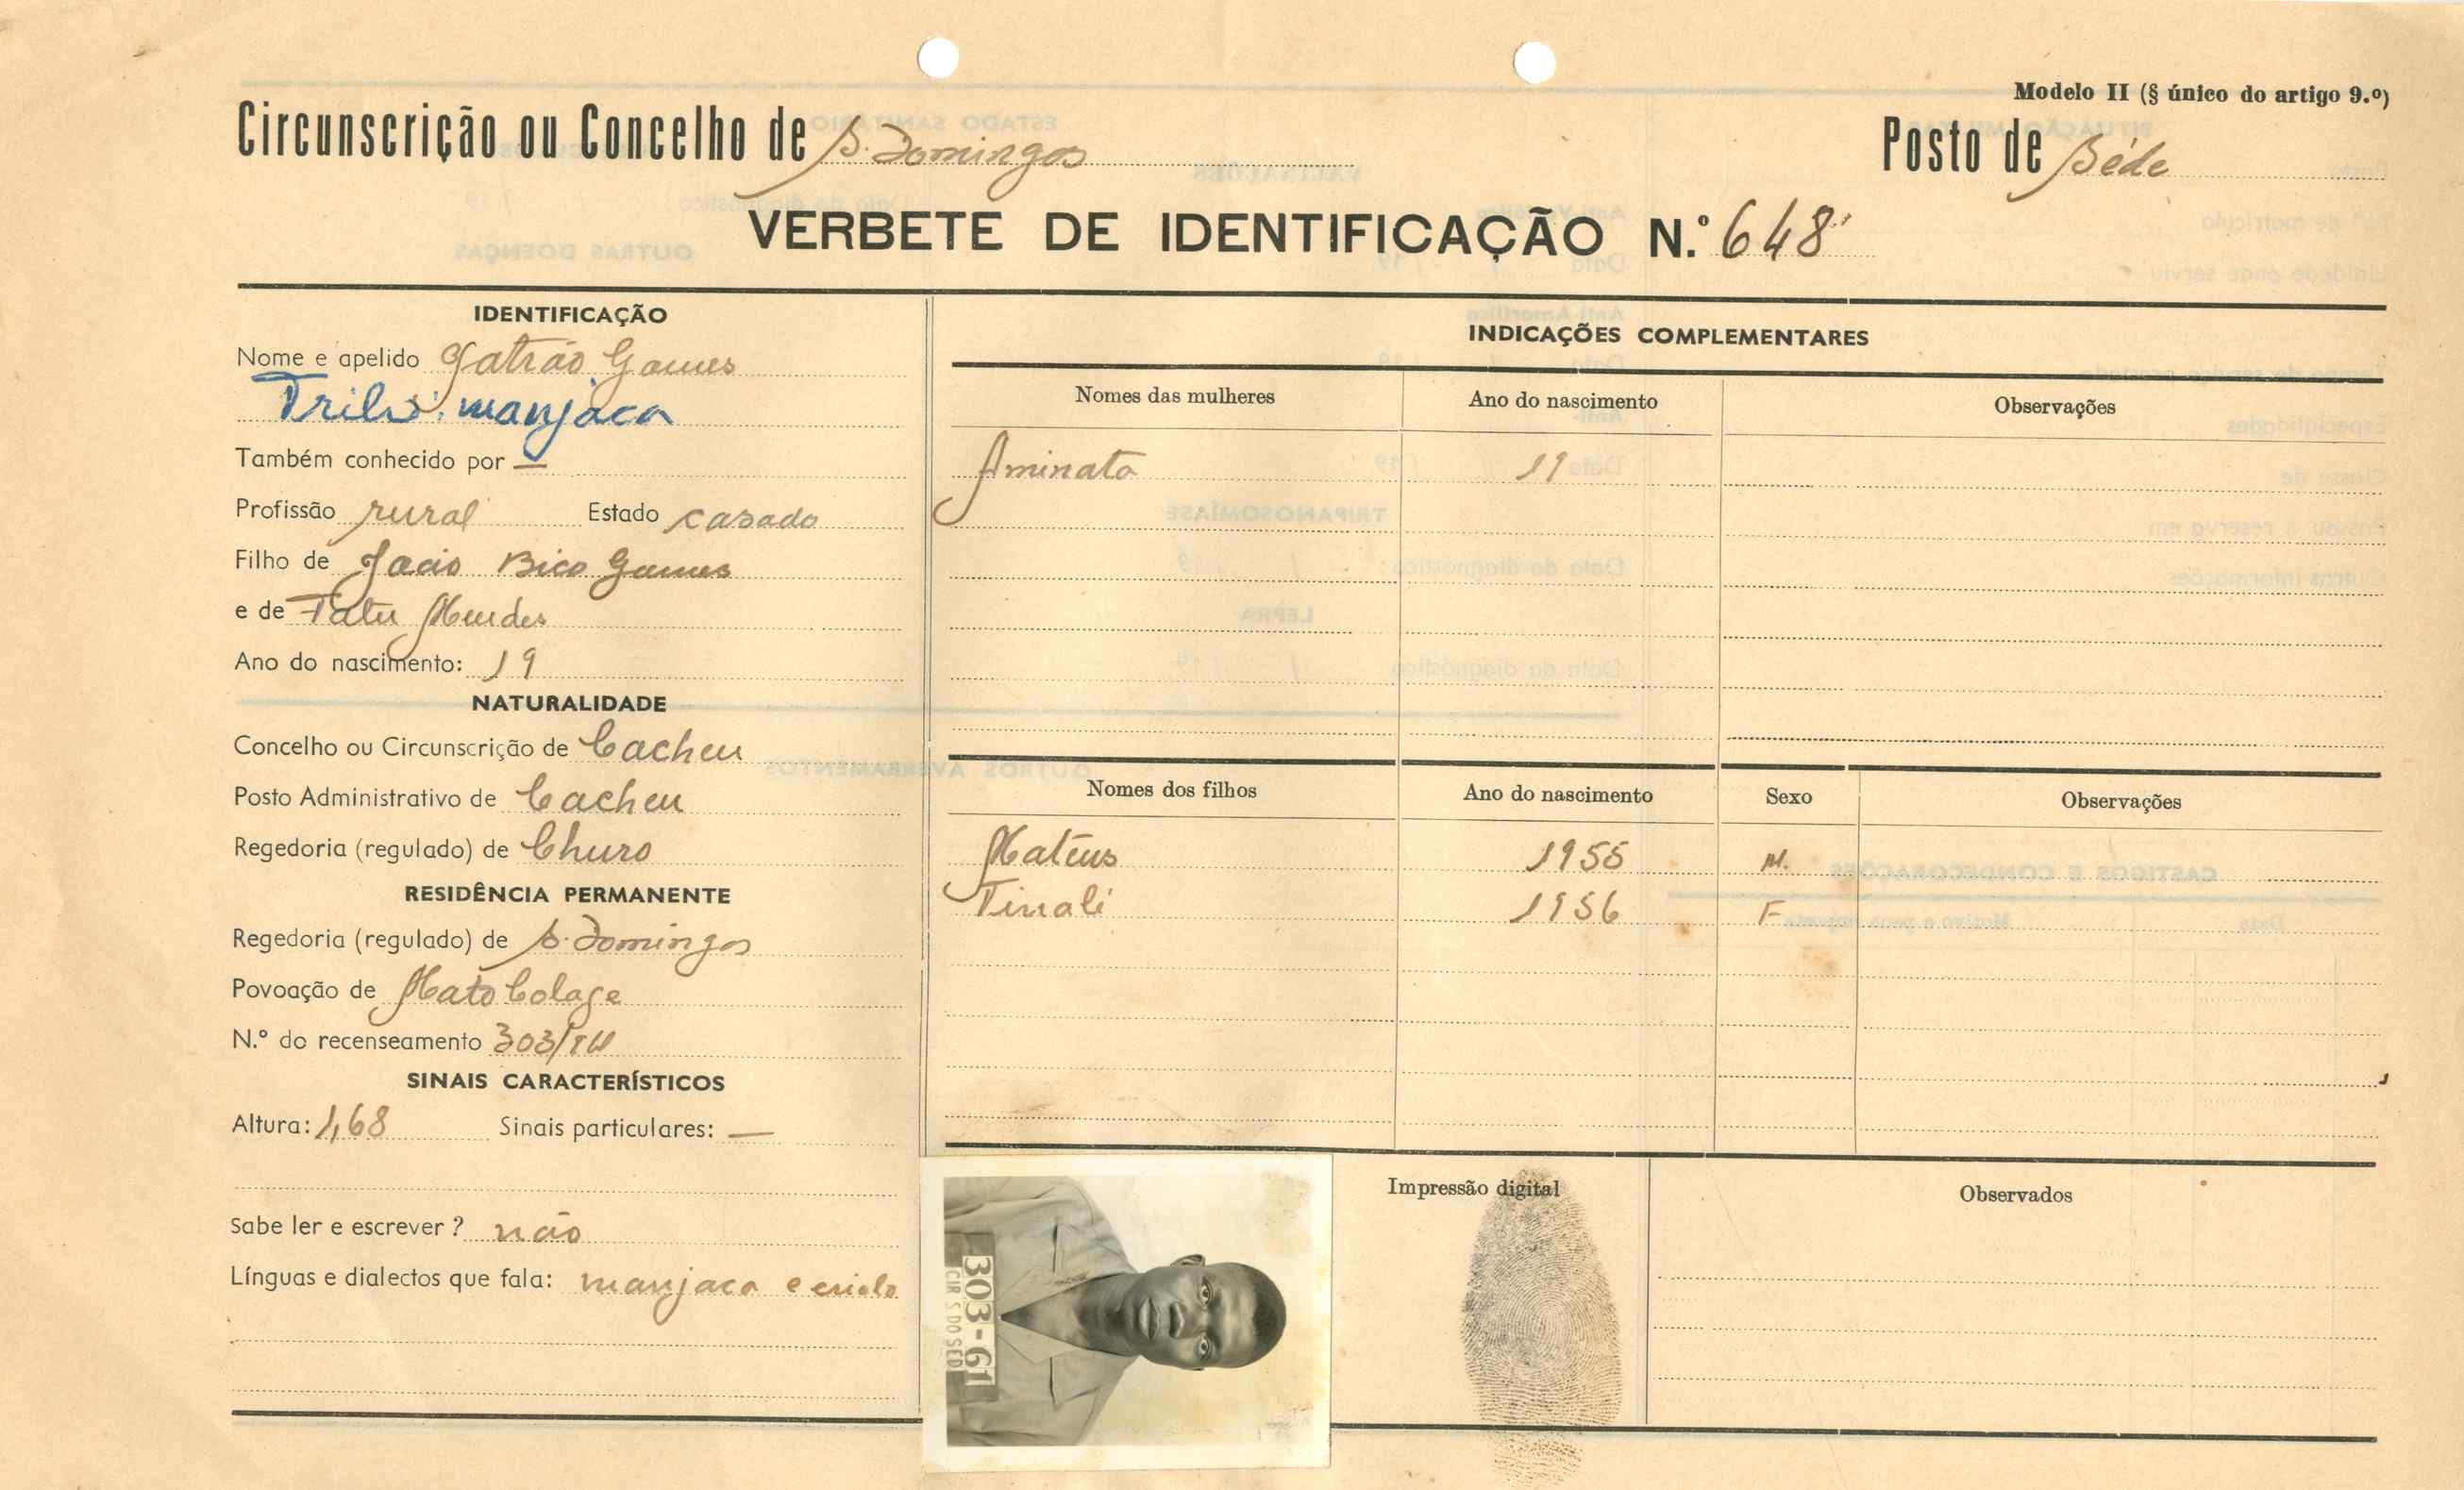 Modelo II (§ único do artigo 9.º)
Circunscrição ou Concelho de S. Domingos
Posto de Séde
VERBETE DE IDENTIFICAÇÃO N.º 648
IDENTIFICAÇÃO
Nome e apelido Jatrão Gomes
Tribo: manjaca
Também conhecido por —
Profissão rural Estado casado
Filho de Jació Bico Gomes
e de Tatu Mendes
Ano do nascimento: 19
NATURALIDADE
Concelho ou Circunscrição de Cacheu
Posto Administrativo de Cacheu
Regedoria (regulado) de Churo
RESIDÊNCIA PERMANENTE
Regedoria (regulado) de S. Domingos
Povoação de Mato
N.º do recenseamento
SINAIS CARACTERÍSTICOS
Altura: 1,68 Sinais particulares: —
Sabe ler e escrever? não
Línguas e dialectos que fala: manjaca e criolo
INDICAÇÕES COMPLEMENTARES
Nomes das mulheres Ano do nascimento Observações
Aminata 19
Nomes dos filhos Ano do nascimento Sexo Observações
Mateus 1955 M.
Tinali 1956 F
303-61
CIR S DO SED
Impressão digital
Observados